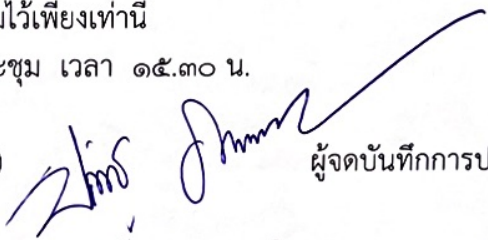 ไว้เพียงเท่านี้
ชุม เวลา ๑๕.๓๐ น.
ผู้จดบันทึกการป